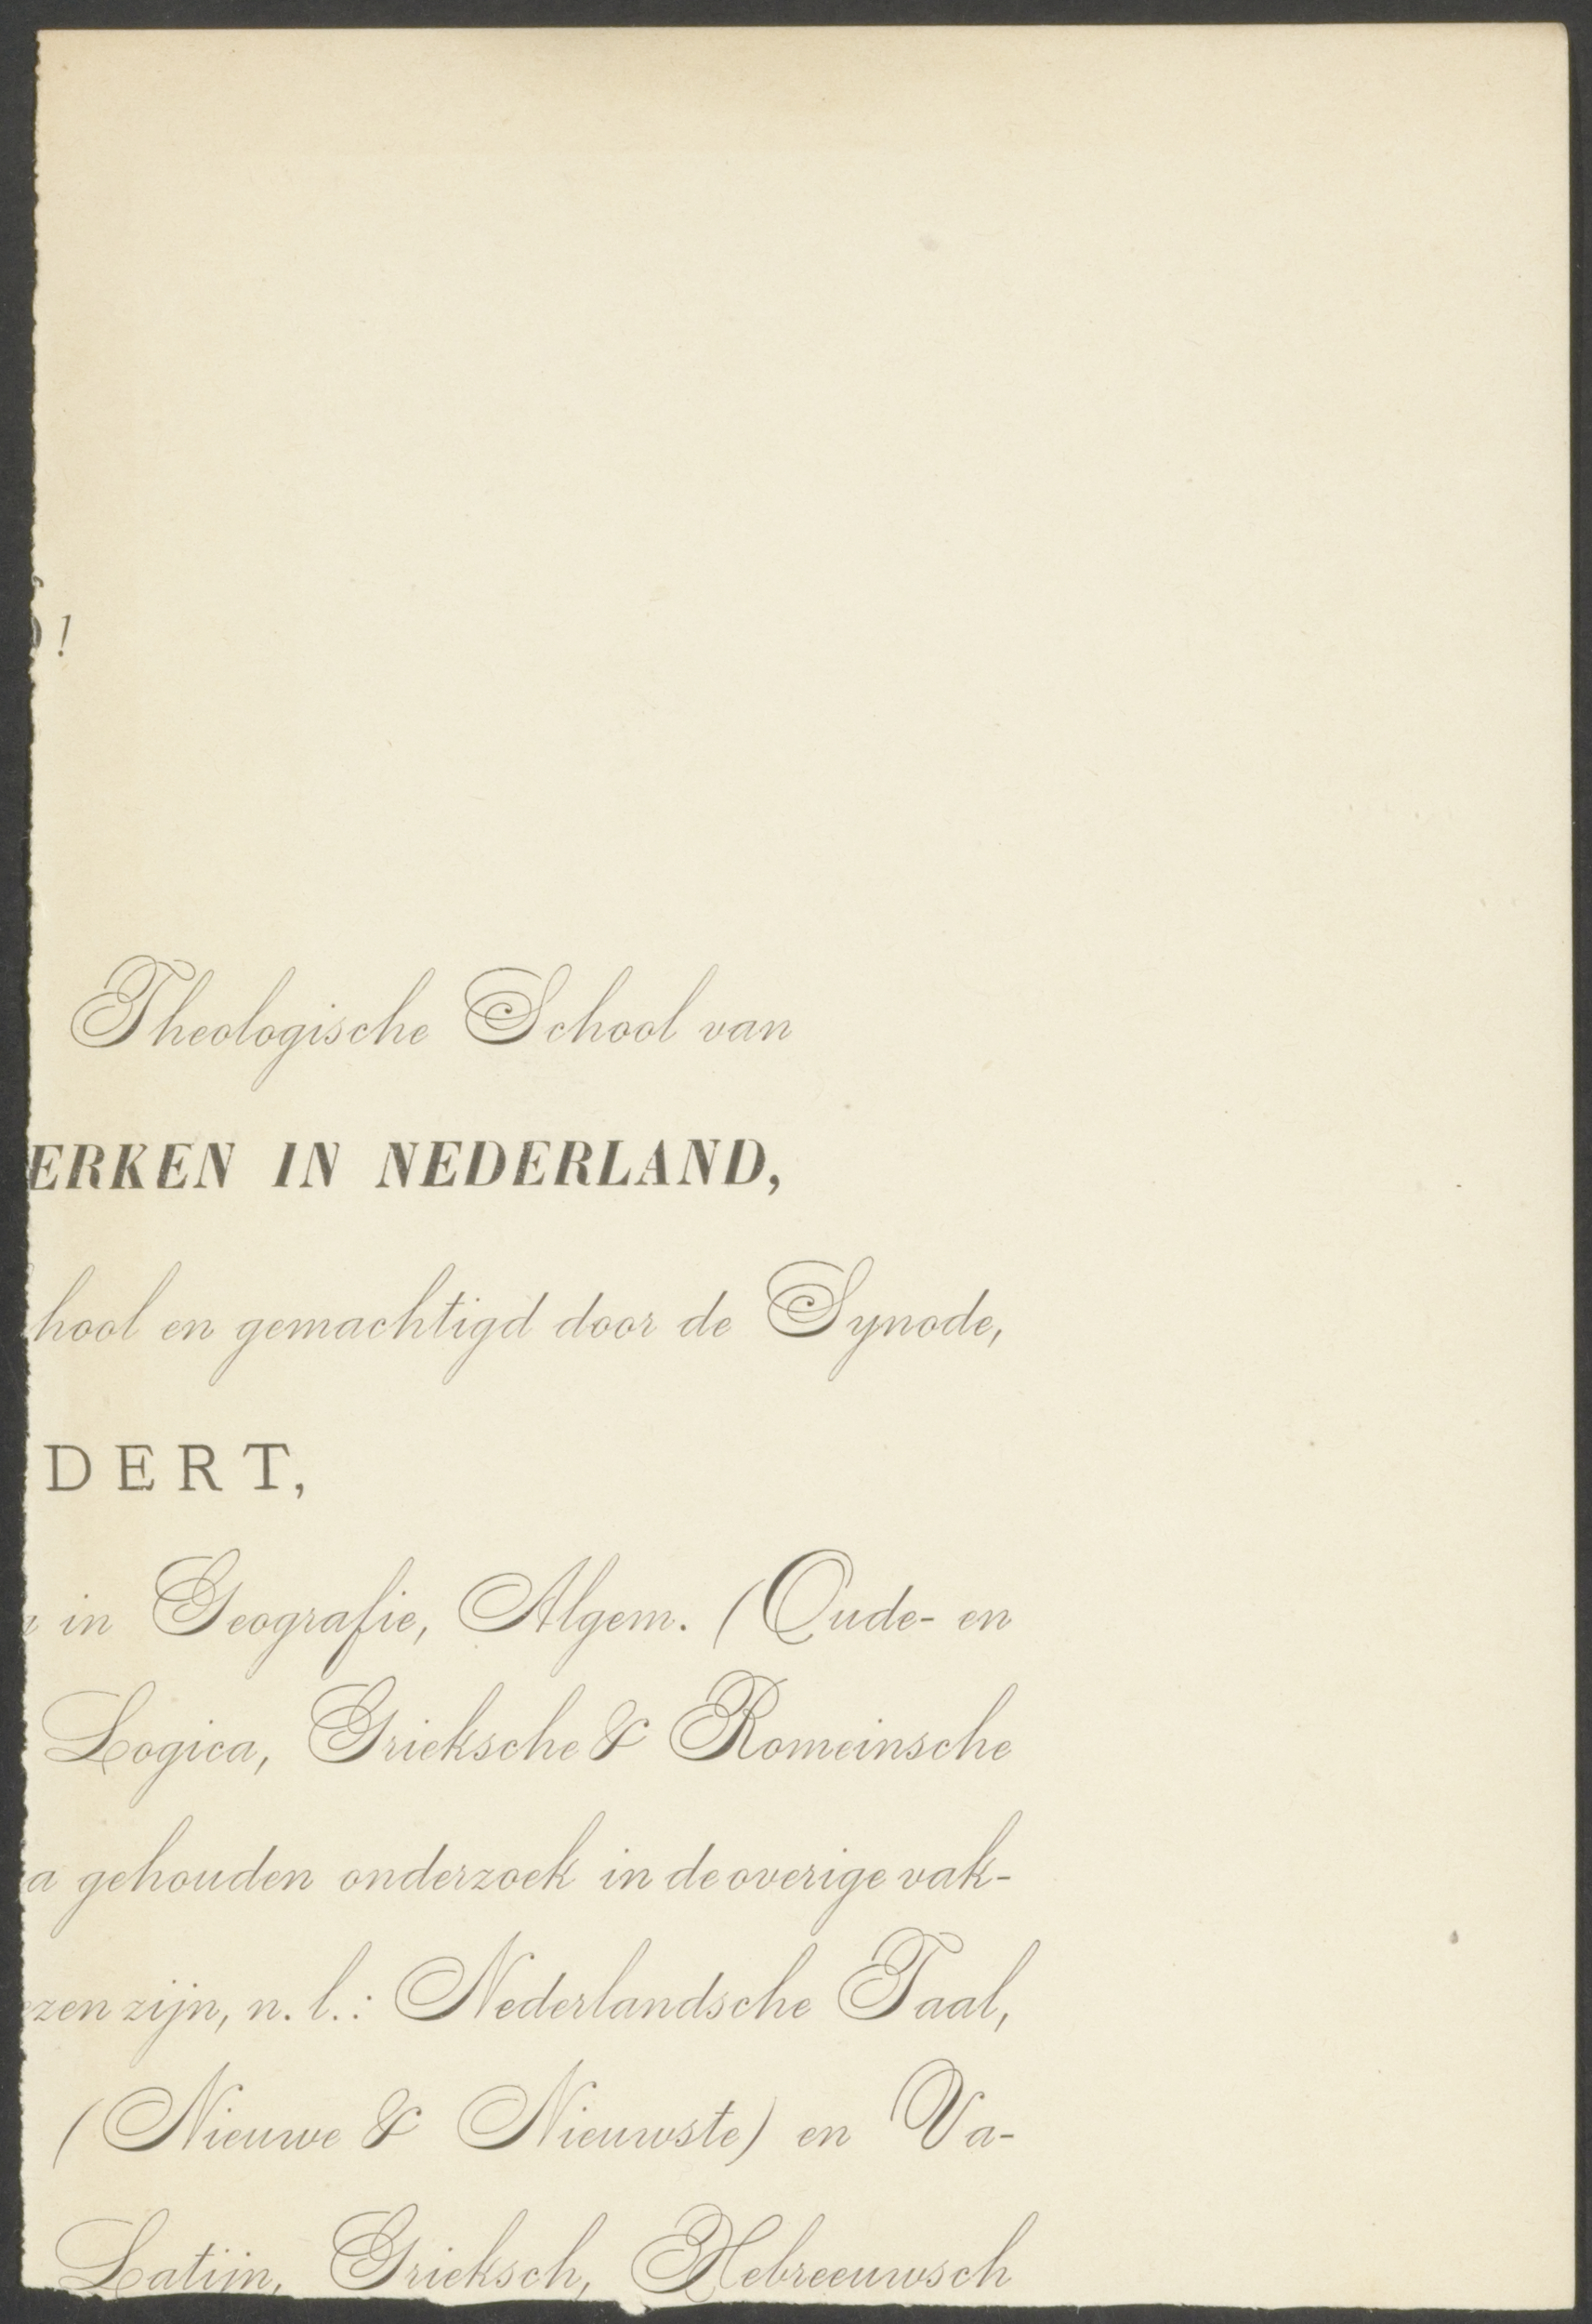 !
Theologische School van
ERKEN IN NEDERLAND,
hool en gemachtigd door de Synode,
DERT,
in Geografie, Algem. (Oude- en
Logica, Grieksche & Romeinsche
a gehouden onderzoek in de overige vak-
zen zijn, n. l.: Nederlandsche Taal,
(Nieuwe & Nieuwste) en Va-
Latijn, Grieksch, Hebreeuwsch